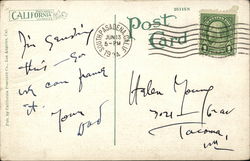 CALIFORNIA
Post Card
SOUTH PASADENA, CALIF.
JUN 13
5-PM
Pub. by California Postcard Co., Los Angeles, Cal.
I'm sending
this - so
we can frame
it.
Your
Dad
Helen Young
Tacoma,